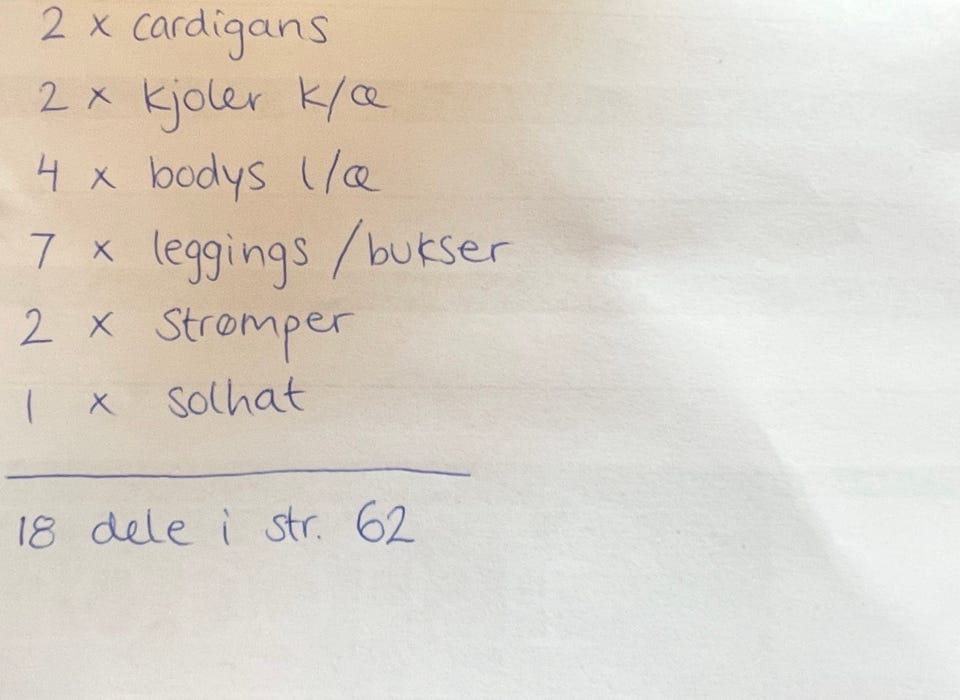 2 x cardigans
2 x kjoler k/æ
4 x bodys l/æ
7 x leggings /bukser
2 x strømper
1 x solhat
18 dele i str. 62